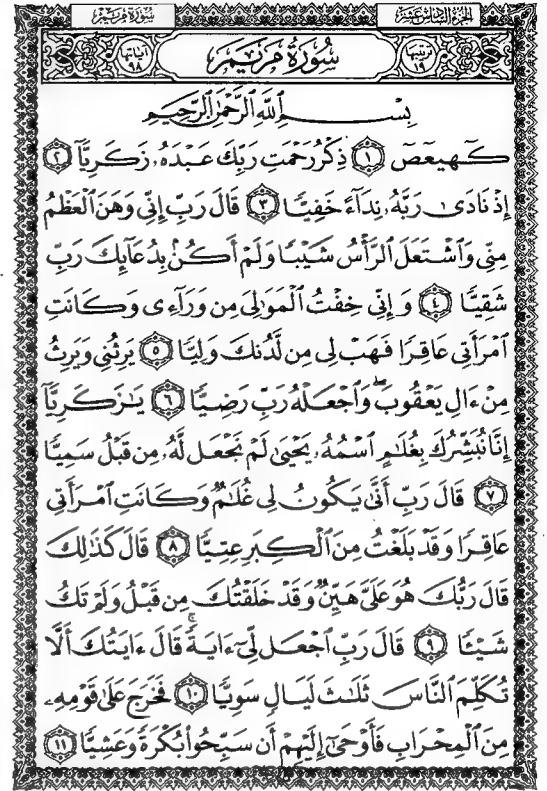 سُورَةُ مَرْيَم الجُزْءُ السَّادِسَ عَشَرَ
آيَاتُهَا ٩٨ سُورَةُ مَرْيَمَ تَرْتِيبُهَا ١٩
بِسْمِ اللَّهِ الرَّحْمَٰنِ الرَّحِيمِ
كٓهيعٓصٓ ١ ذِكْرُ رَحْمَتِ رَبِّكَ عَبْدَهُۥ زَكَرِيَّآ ٢
إِذْ نَادَىٰ رَبَّهُۥ نِدَآءً خَفِيًّا ٣ قَالَ رَبِّ إِنِّى وَهَنَ ٱلْعَظْمُ
مِنِّى وَٱشْتَعَلَ ٱلرَّأْسُ شَيْبًا وَلَمْ أَكُنۢ بِدُعَآئِكَ رَبِّ
شَقِيًّا ٤ وَإِنِّى خِفْتُ ٱلْمَوَٰلِىَ مِن وَرَآءِى وَكَانَتِ
ٱمْرَأَتِى عَاقِرًا فَهَبْ لِى مِن لَّدُنكَ وَلِيًّا ٥ يَرِثُنِى وَيَرِثُ
مِنْ ءَالِ يَعْقُوبَ ۖ وَٱجْعَلْهُ رَبِّ رَضِيًّا ٦ يَٰزَكَرِيَّآ
إِنَّا نُبَشِّرُكَ بِغُلَٰمٍ ٱسْمُهُۥ يَحْيَىٰ لَمْ نَجْعَل لَّهُۥ مِن قَبْلُ سَمِيًّا
٧ قَالَ رَبِّ أَنَّىٰ يَكُونُ لِى غُلَٰمٌ وَكَانَتِ ٱمْرَأَتِى
عَاقِرًا وَقَدْ بَلَغْتُ مِنَ ٱلْكِبَرِ عِتِيًّا ٨ قَالَ كَذَٰلِكَ
قَالَ رَبُّكَ هُوَ عَلَىَّ هَيِّنٌ وَقَدْ خَلَقْتُكَ مِن قَبْلُ وَلَمْ تَكُ
شَيْـًٔا ٩ قَالَ رَبِّ ٱجْعَل لِّىٓ ءَايَةً ۚ قَالَ ءَايَتُكَ أَلَّا
تُكَلِّمَ ٱلنَّاسَ ثَلَٰثَ لَيَالٍ سَوِيًّا ١٠ فَخَرَجَ عَلَىٰ قَوْمِهِۦ
مِنَ ٱلْمِحْرَابِ فَأَوْحَىٰٓ إِلَيْهِمْ أَن سَبِّحُوا۟ بُكْرَةً وَعَشِيًّا ١١